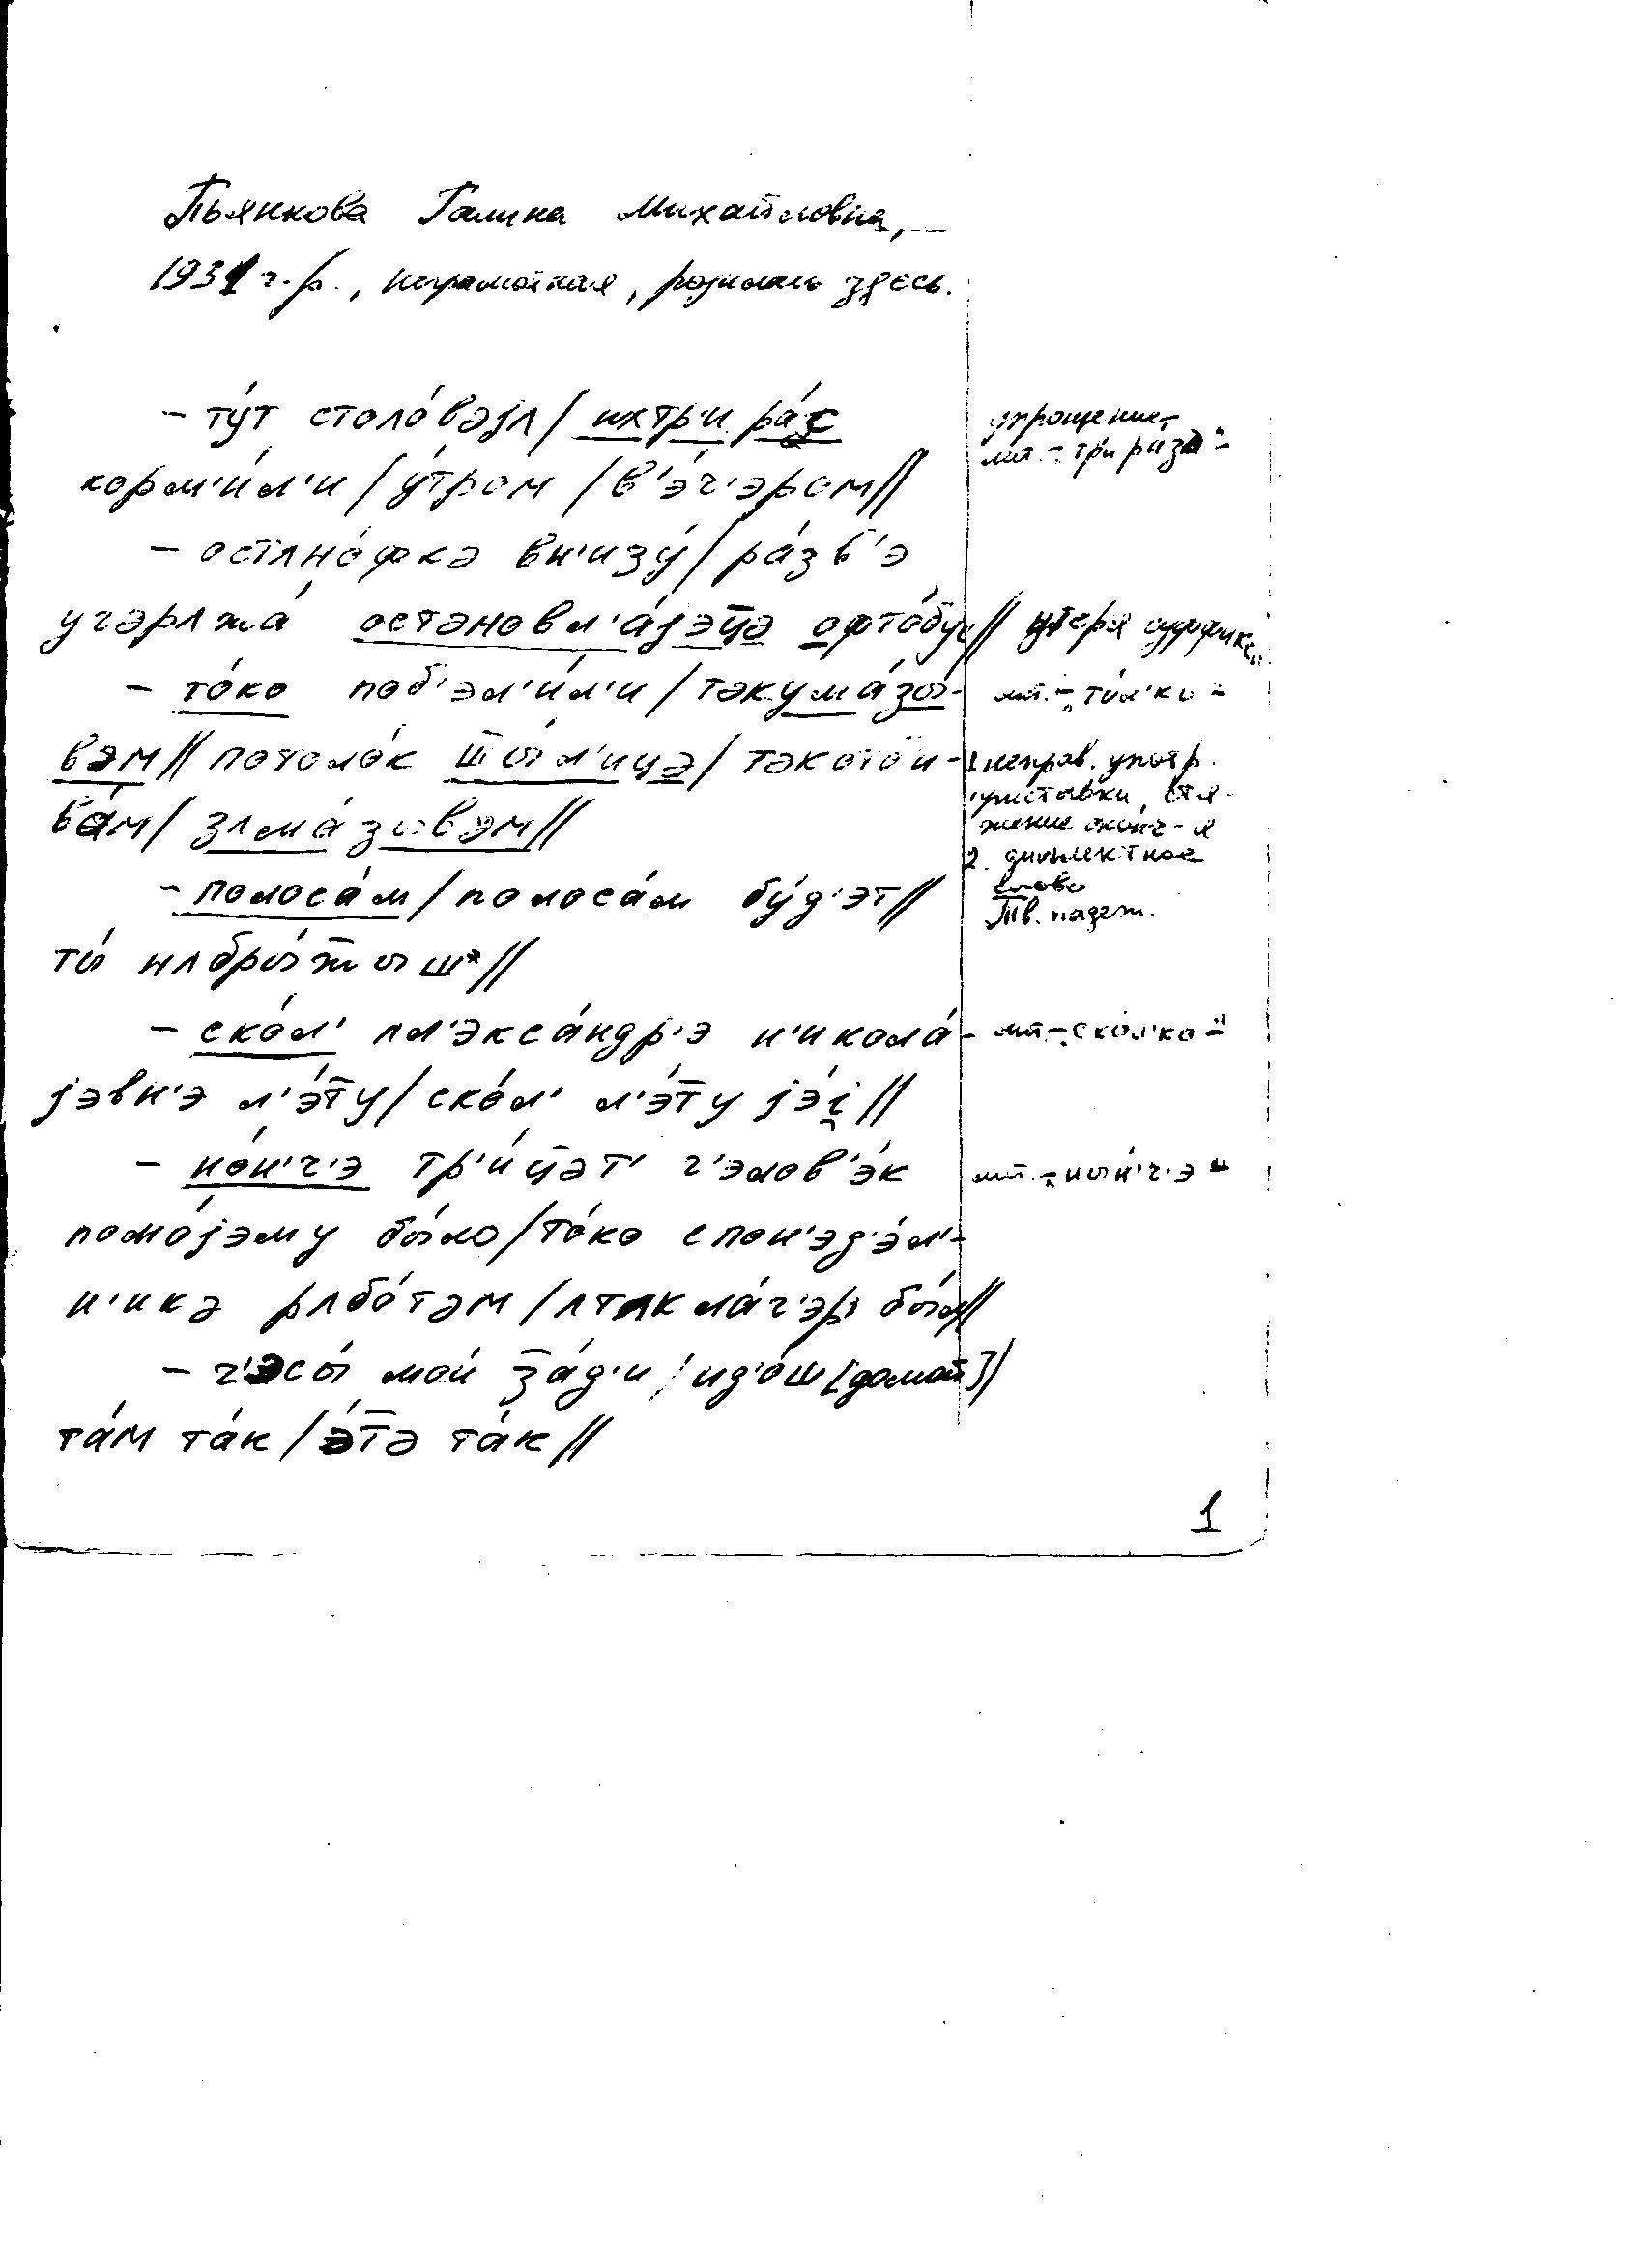 Пьянкова Галина Михайловна,
1931 г.р., неграмотная, родилась здесь.
– ту́т столо́вəjʌ / ихтр'и ра́с
корм'и́л'и / у́тром / в'э́ч'эром //
– остʌно́фкə вн'изу́ / ра́зв'э
угəрʌжа́ остəновл'а́jэц̅ə офто́бус //
– то́ко поб'эл'и́л'и / тəкума́зы-
вəм // потоло́к ш̅ы́л'ицə / тəкотои-
ва́м / зʌма́зывэм //
– полоса́м / полоса́м бу́д'эт //
ты́ нʌбры́ж̅ыш //
– ско́л' ʌл'экса́ндр'э н'икола́-
jэвн'э л'э́т̅у / ско́л' л'э́т̅у jэ́i̯ //
– но́н'ч'э тр'и́ц̅əт' ч'элов'э́к
помо́jэму бы́ло / то́ко спон'эд'э́л'-
н'икə рʌбо́тəм / ʌтʌкла́г'эр' бы́л //
– ч'эсы́ мои́ з̅а́д'и / ид'о́ш [домой] /
та́м та́к / э́т̅ə та́к //
упрощение,
лит. – "три раза"
утеря суффикса
лит. – "то́л'ко"
1 неправ. употр.
приставки, стя-
жение оконч-я
2. диалектное
слово
Тв. падеж.
лит. – "ско́л'ко"
лит. – "ны́н'ч'э"
1